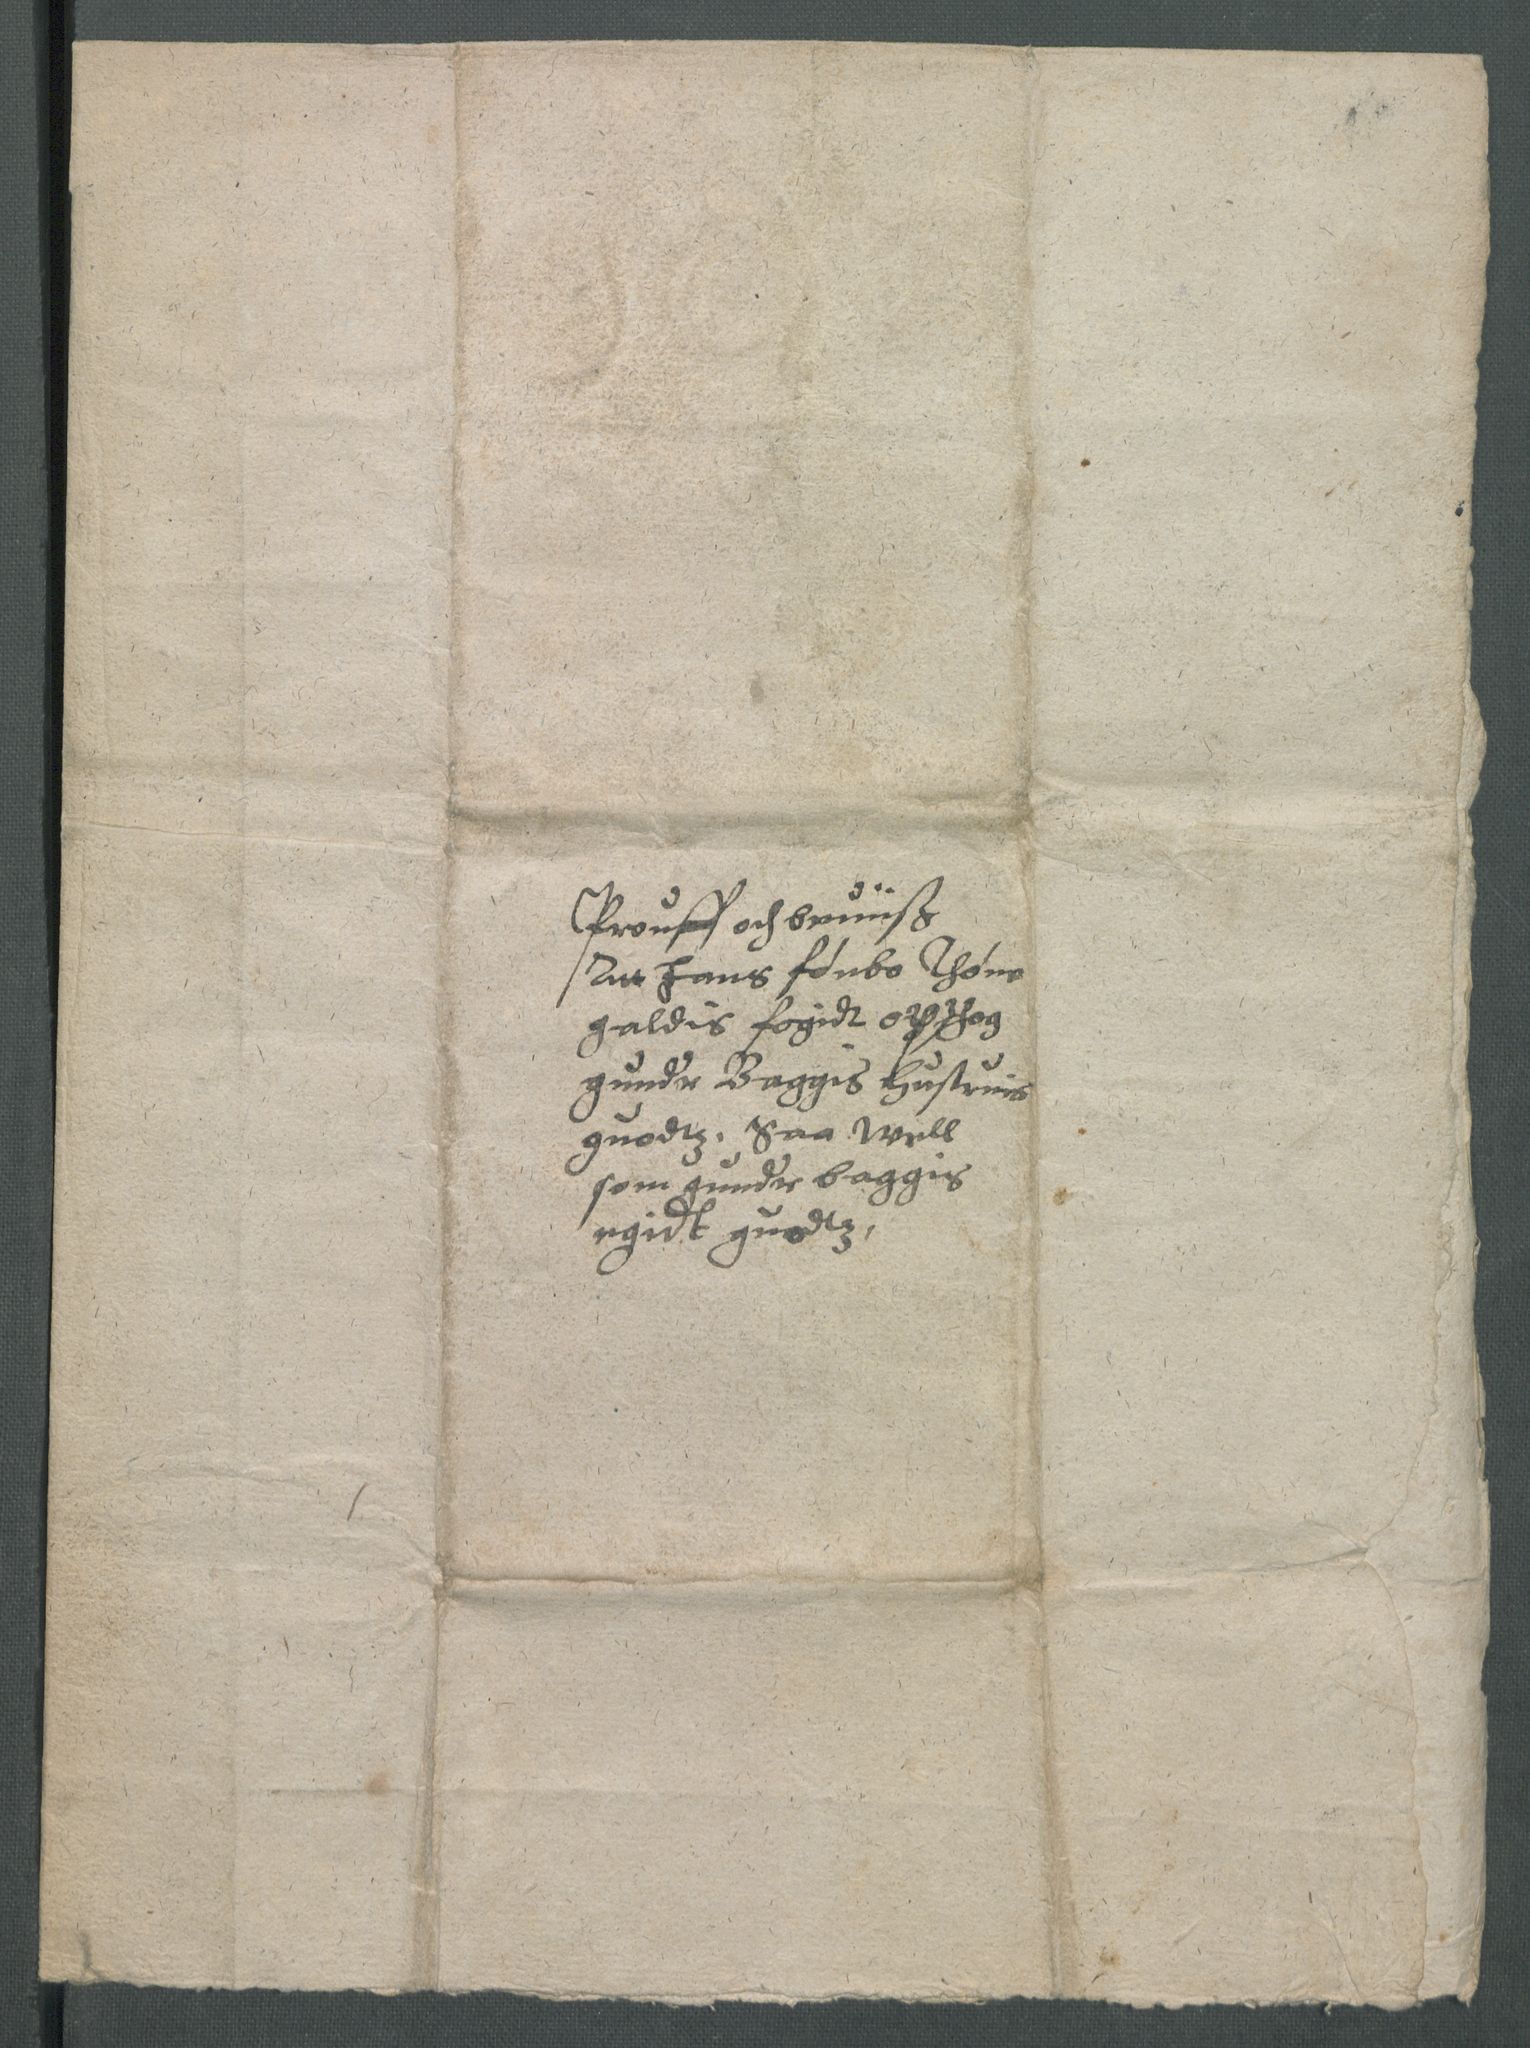 Prouff och beuiiss
Att Hans fønbo Thøne
galdis fogidt optog
gunder Baggis Hustruis
guodtz, Saa well
som gunder baggis
egidt guodtz,